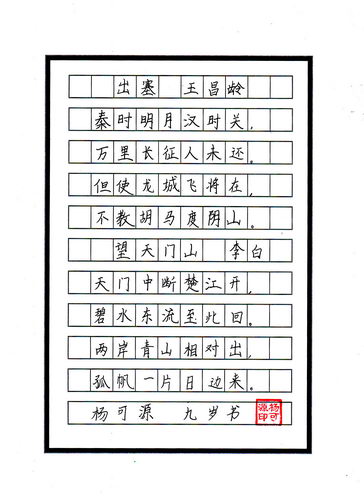 出塞 王昌龄
秦时明月汉时关，
万里长征人未还。
但使龙城飞将在，
不教胡马度阴山。
望天门山 李白
天门中断楚江开，
碧水东流至此回。
两岸青山相对出，
孤帆一片日边来。
杨可源 九岁书
杨可源印